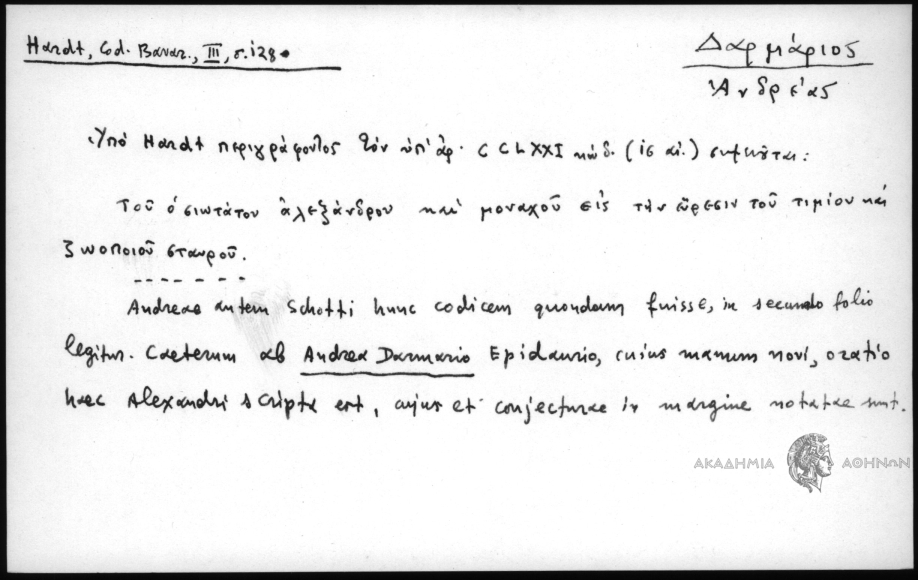 Hardt, Cod. Bavar., III, σ. 128.
Δαρμάριος
Ἀνδρέας
Ὑπό Hardt περιγράφοντος τόν ὑπ' ἀρ. CCLXXI κώδ. (ις αἰ.) σημειοῦται:
Τοῦ ὁσιωτάτου ἀλεξάνδρου καί μοναχοῦ εἰς τήν εὕρεσιν τοῦ τιμίου καί
ζωοποιοῦ σταυροῦ.
Andreae autem Schotti hunc codicem quondam fuisse, in secundo folio
legitur. Caeterum ab Andrea Darmario Epidaurio, cuius manum novi, oratio
haec Alexandri scripta est, cujus et conjecturae in margine notatae sunt.
ΑΚΑΔΗΜΙΑ ΑΘΗΝΩΝ